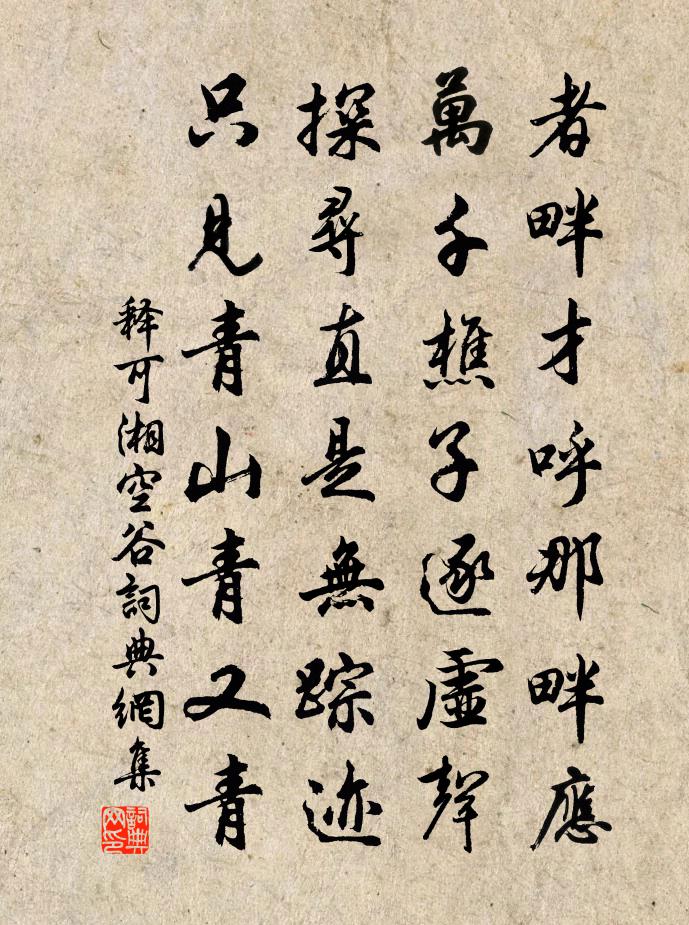 者畔才呼那畔應
萬千樵子逐虛聲
探尋直是無踪迹
只見青山青又青
释可湘空谷詞典網集
詞典网印